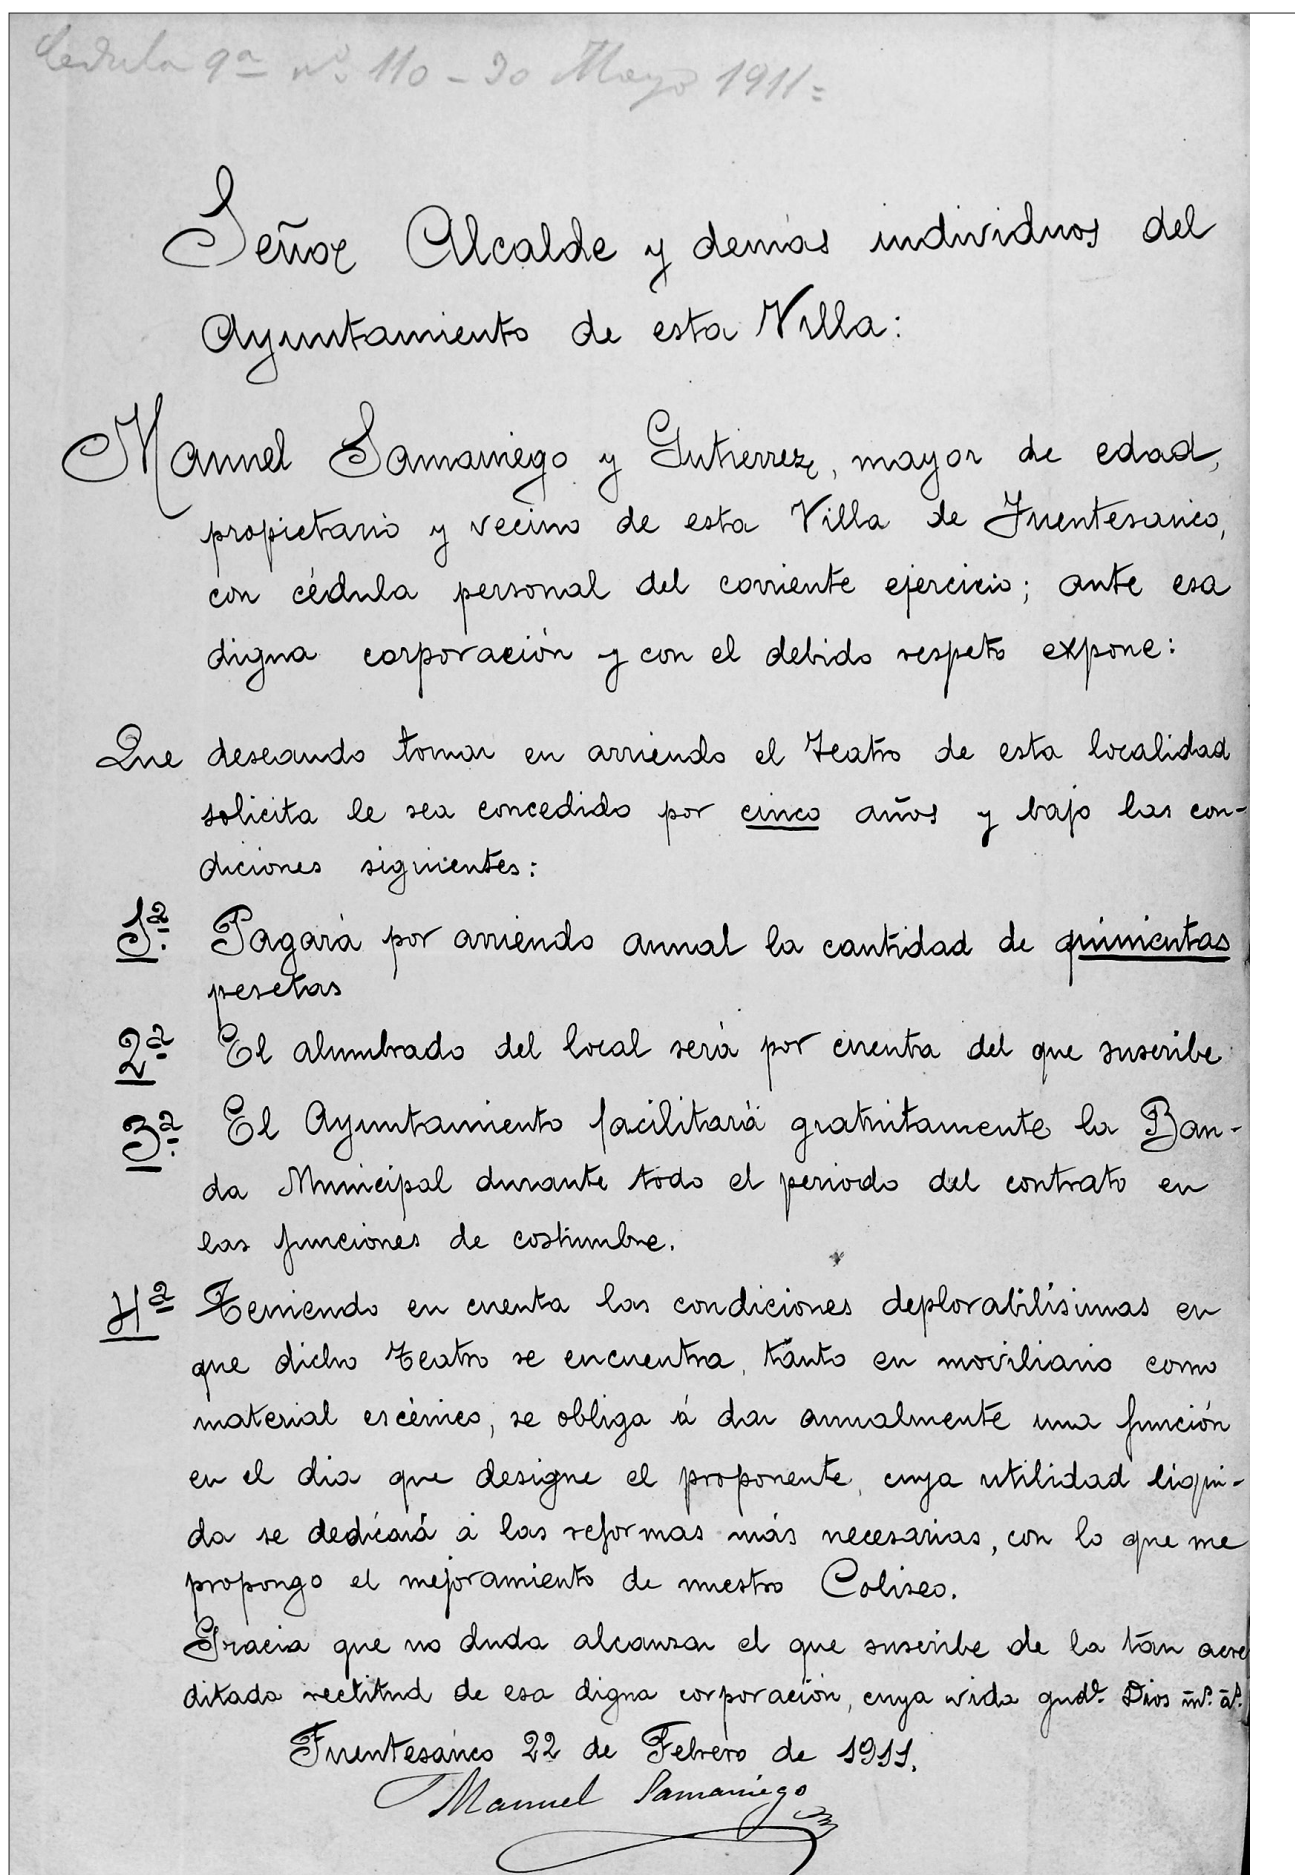 Cedula 9ª nº 110 - 30 Mayo 1911=
Señor Alcalde y demás individuos del
Ayuntamiento de esta Villa:
Manuel Samaniego y Gutierrez, mayor de edad,
propietario y vecino de esta Villa de Fuentesaúco,
con cédula personal del corriente ejercicio; ante esa
digna corporación y con el debido respeto expone:
Que deseando tomar en arriendo el Teatro de esta localidad
solicita le sea concedido por cinco años y bajo las con-
diciones siguientes:
1ª. Pagará por arriendo annal la cantidad de quinientas
pesetas
2ª El alumbrado del local será por cuenta del que suscribe
3ª. El Ayuntamiento facilitará gratuitamente la Ban-
da Municipal durante todo el periodo del contrato en
las funciones de costumbre.
4ª Teniendo en cuenta las condiciones deplorabilísimas en
que dicho Teatro se encuentra, tanto en moviliario como
material escénico, se obliga á dar anualmente una función
en el dia que designe el proponente, cuya utilidad líqui-
da se dedicará á las reformas más necesarias, con lo que me
propongo el mejoramiento de nuestro Coliseo.
Gracia que no duda alcanzar el que suscribe de la tan acre
ditada rectitud de esa digna corporación, cuya vida gudº. Dios mˢ. aˢ.
Fuentesaúco 22 de Febrero de 1911.
Manuel Samaniego